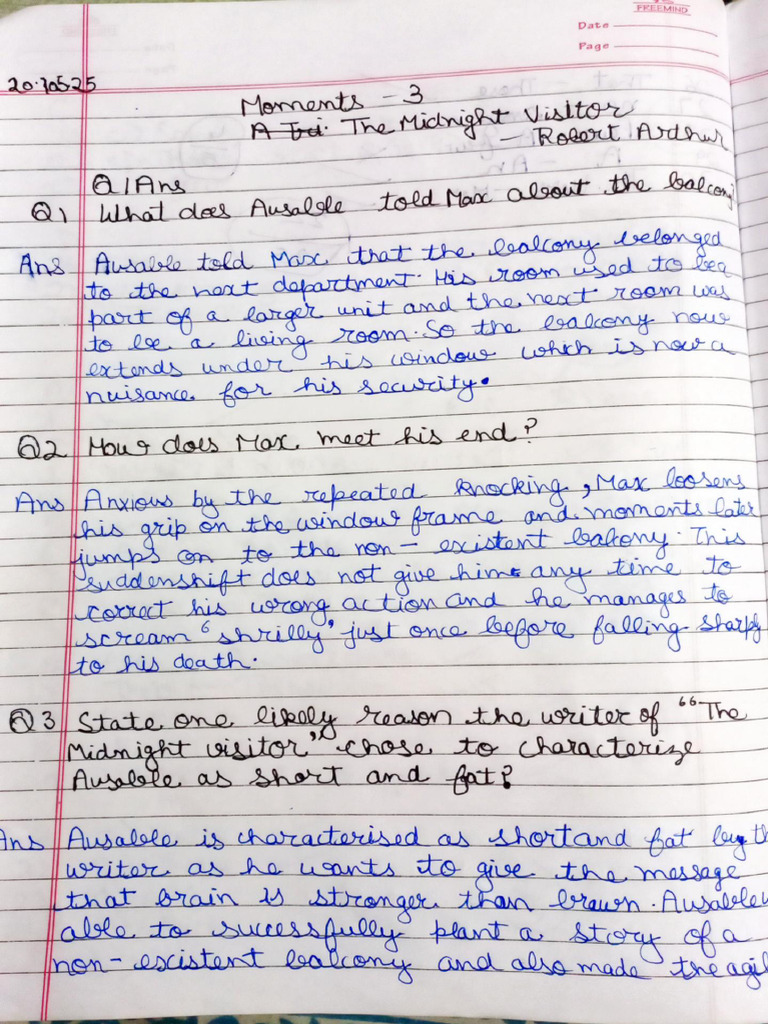 FREEMIND
Date
Page
20.05.25
Moments - 3
A The Midnight Visitor
- Robert Arthur
Q1Ans
Q1 What does Ausable told Max about the balcony
Ans Ausable told Max that the balcony belonged
to the next department. His room used to be a
part of a larger unit and the next room was
to be a living room. So the balcony now
extends under his window which is now a
nuisance for his security.
Q2 How does Max meet his end?
Ans Anxious by the repeated knocking, Max loosens
his grip on the window frame and moments later
jumps on to the non-existent balcony. This
sudden shift does not give him any time to
correct his wrong action and he manages to
scream 'shrilly' just once before falling sharply
to his death.
Q3 State one likely reason the writer of "The
Midnight visitor" chose to characterize
Ausable as short and fat?
Ans Ausable is characterised as short and fat by th
writer as he wants to give the message
that brain is stronger than brawn. Ausable
able to successfully plant a story of a
non-existent balcony and also made the agil